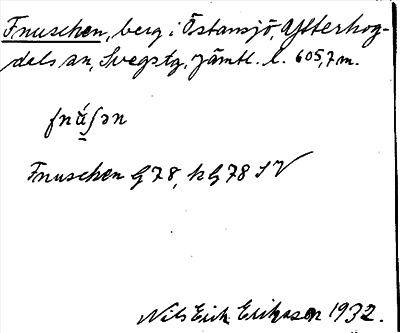 Fnuschen, berg i Östansjö, Ytterhog-
dals sn, Svegs tg, Jämtl. l. 605,7 m.
Fnuschen G 78, k G 78 SV
Nils Erik Eriksson 1932.